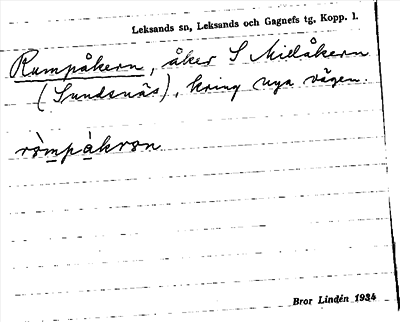 Leksands sn, Leksands och Gagnefs tg, Kopp. l.
Rumpåkern, åker S Millåkern
(Sundsnäs), kring nya vägen.
ròmpàkron
Bror Lindén 1934